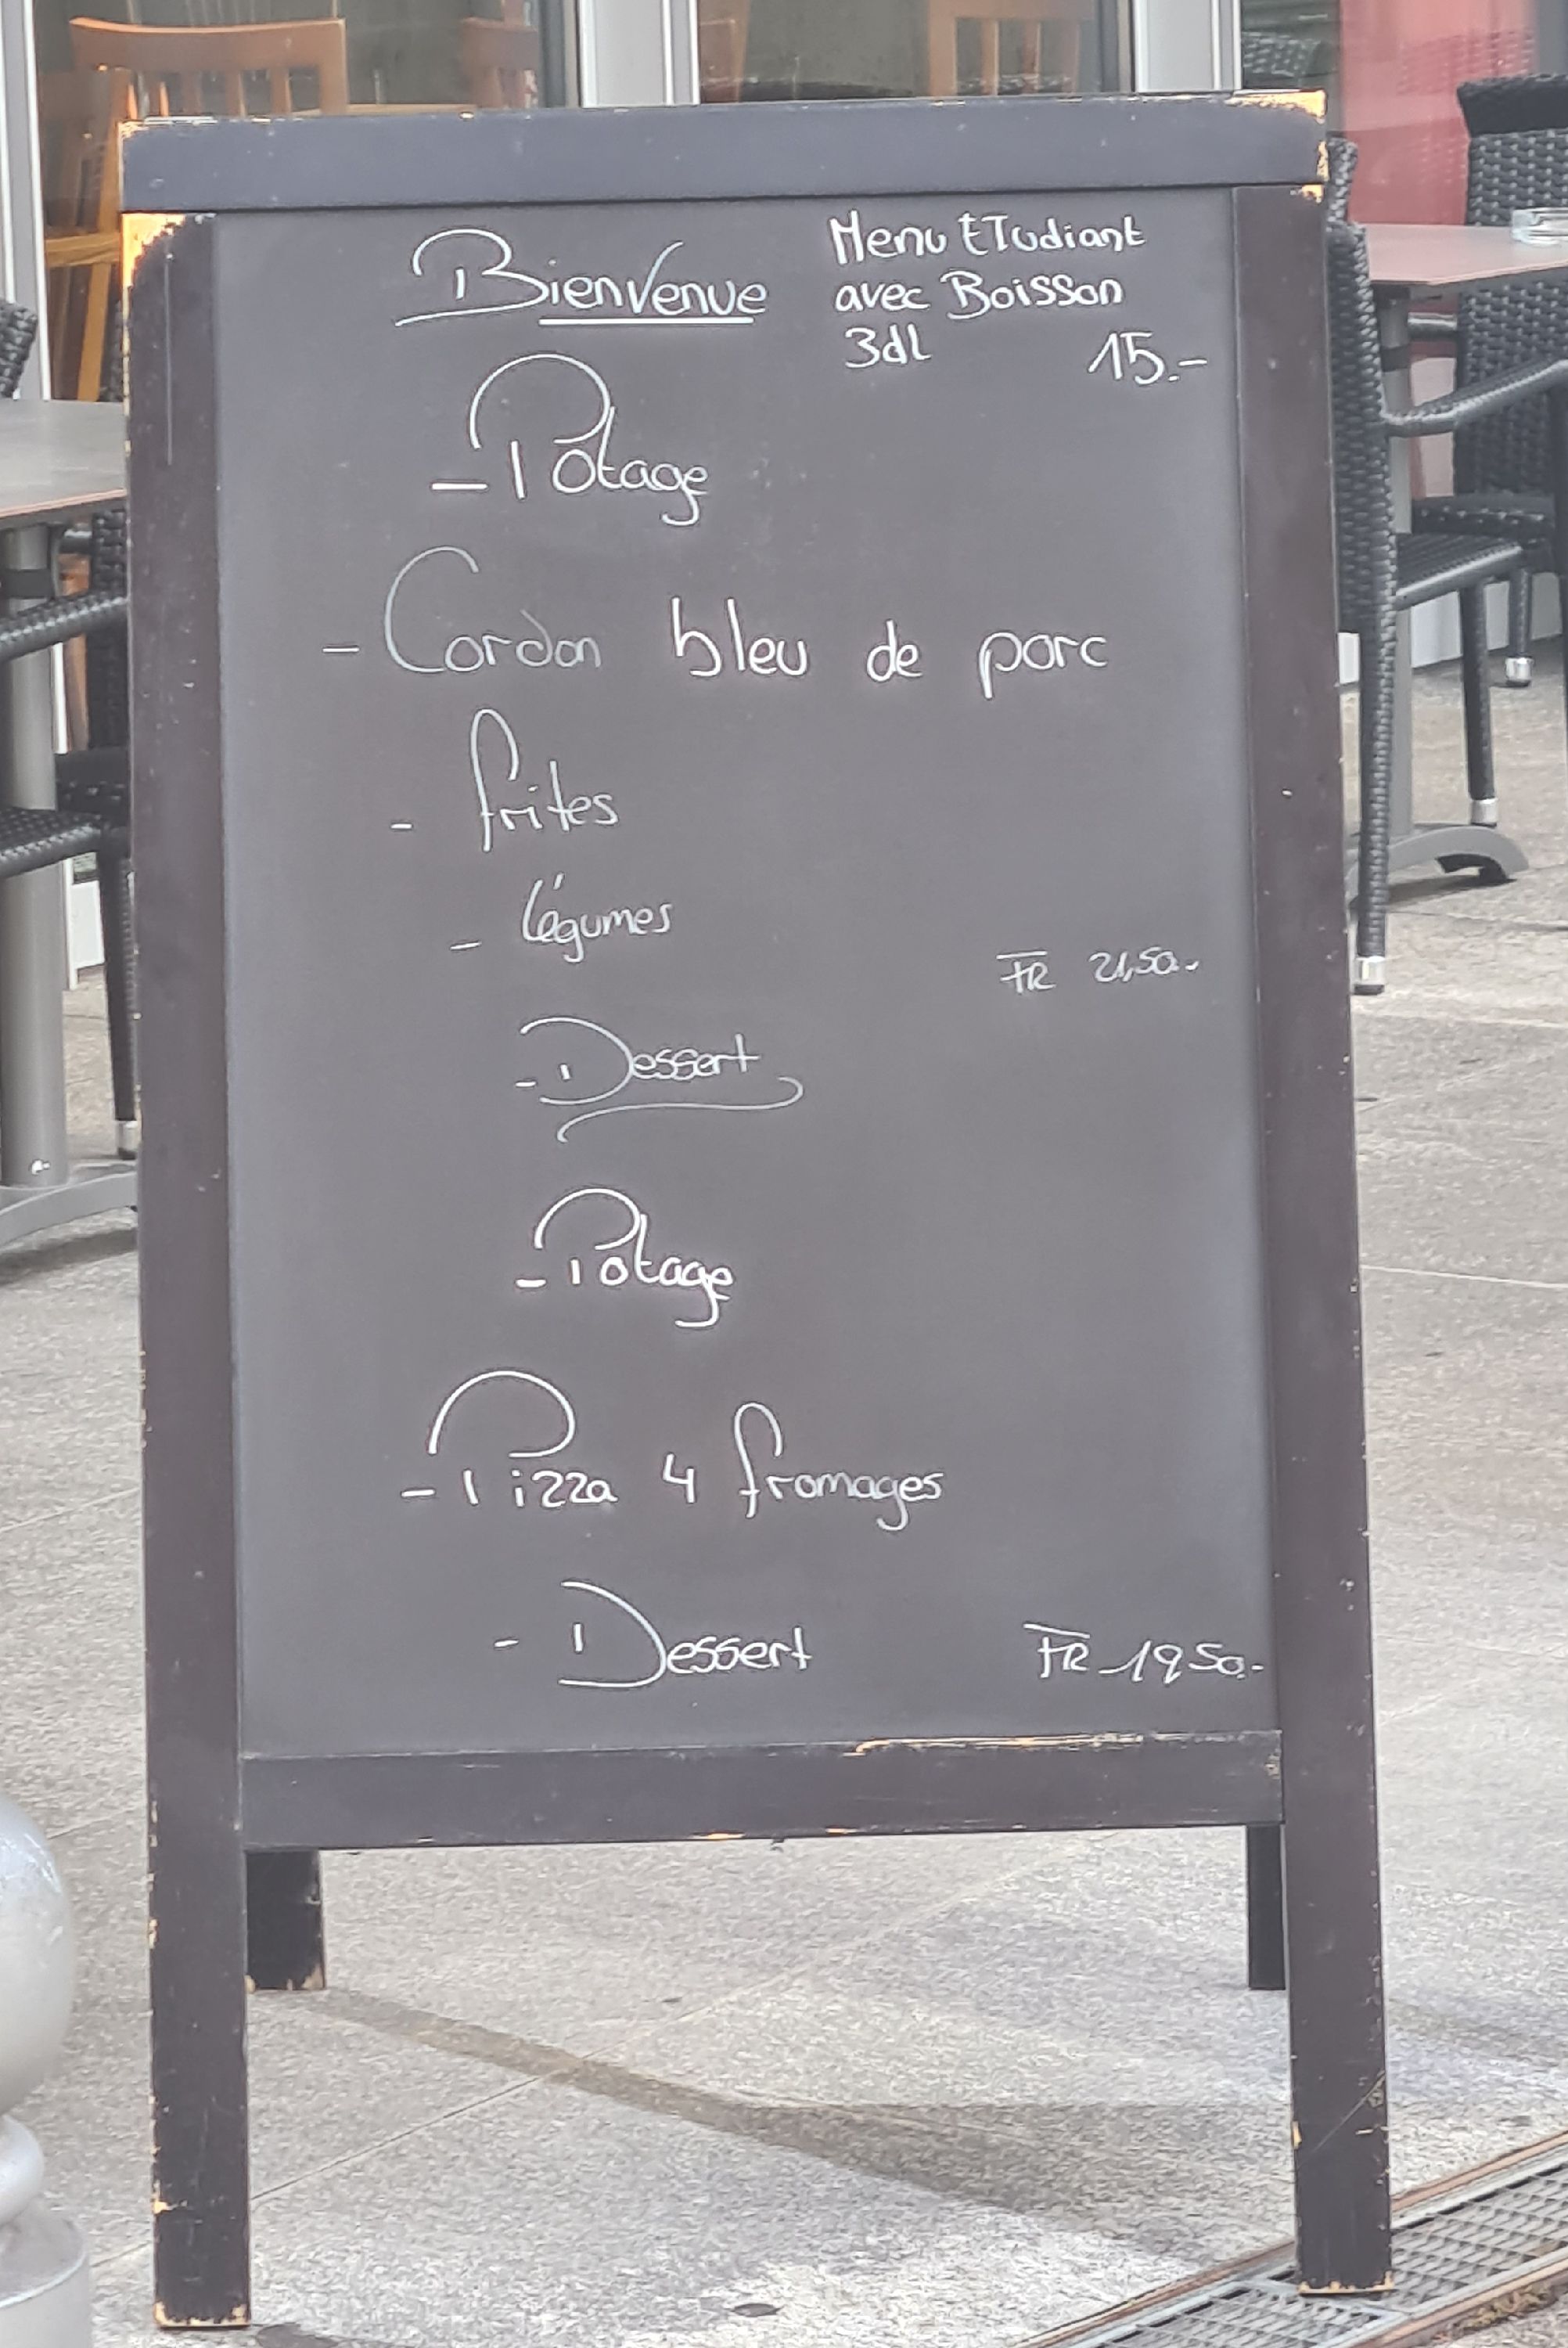 Bienvenue
Menu ETudiant
avec Boisson
3dl 15.-
- Potage
- Cordon bleu de porc
- frites
- légumes
FR 21,50.-
- Dessert
- Potage
- Pizza 4 fromages
- Dessert FR 19 50.-